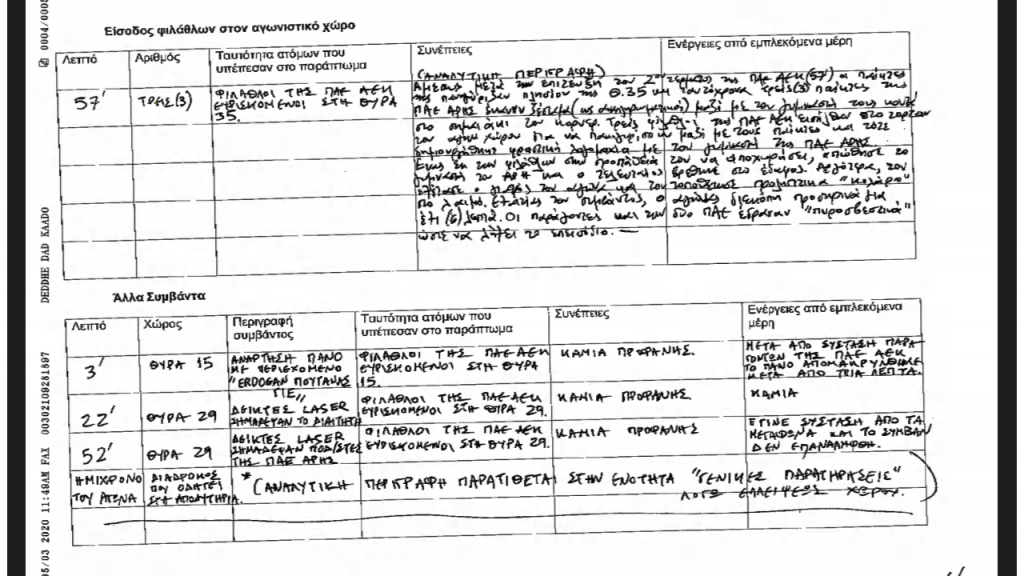 Είσοδος φιλάθλων στον αγωνιστικό χώρο
Λεπτό
Αριθμός
Ταυτότητα ατόμων που
υπέπεσαν στο παράπτωμα
Συνέπειες
Ενέργειες από εμπλεκόμενα μέρη
57'
ΤΡΕΙΣ(3)
ΦΙΛΑΘΛΟΙ ΤΗΣ ΠΑΕ ΑΕΚ
ΕΥΡΙΣΚΟΜΕΝΟΙ ΣΤΗ ΘΥΡΑ
35.
(ΑΝΑΛΥΤΙΚΗ ΠΕΡΙΓΡΑΦΗ)
Αμέσως μετά την επίτευξη του 2ου τέρματος της ΠΑΕ ΑΕΚ (57') οι παίκτες
της πανηγύριζαν πλησίον της Θ.35 και ταυτόχρονα τρεις(3) παίκτες της
ΠΑΕ ΑΡΗΣ έκαναν ζέσταμα (ως αναπληρωματικοί) μαζί με τον γυμναστή τους κοντά
στο σημαιάκι του κόρνερ. Τρεις φίλαθλοι της ΠΑΕ ΑΕΚ εισήλθαν στο
του αγων. χώρου για να πανηγυρίσουν μαζί με τους παίκτες και τότε
δημιουργήθηκε φραστική λογομαχία με τον γυμναστή της ΠΑΕ ΑΡΗΣ.
Ένας εκ των φιλάθλων στην προσπάθειά του να αποχωρήσει, απώθησε το
γυμναστή του ΑΡΗ και ο τελευταίος βρέθηκε στο έδαφος. Αργότερα, τον
εξέτασε ο γιατρός του αγώνα και του τοποθέτησε προληπτικά "κολάρο"
στο λαιμό. Εξαιτίας του συμβάντος, ο αγώνας διεκόπη προσωρινά για
έξι (6) λεπτά. Οι παράγοντες και των δύο ΠΑΕ έδρασαν "πυροσβεστικά"
ώστε να λήξει το επεισόδιο.
Άλλα Συμβάντα
Λεπτό
Χώρος
Περιγραφή
συμβάντος
Ταυτότητα ατόμων που
υπέπεσαν στο παράπτωμα
Συνέπειες
Ενέργειες από εμπλεκόμενα
μέρη
3'
ΘΥΡΑ 15
ΑΝΑΡΤΗΣΗ ΠΑΝΟ
ΜΕ ΠΕΡΙΕΧΟΜΕΝΟ
"ERDOGAN ΠΟΥΤΑΝΑΣ
ΓΙΕ,,
ΦΙΛΑΘΛΟΙ ΤΗΣ ΠΑΕ ΑΕΚ
ΕΥΡΙΣΚΟΜΕΝΟΙ ΣΤΗ ΘΥΡΑ
15.
ΚΑΜΙΑ ΠΡΟΦΑΝΗΣ.
ΜΕΤΑ ΑΠΟ ΣΥΣΤΑΣΗ ΠΑΡΑ
ΓΟΝΤΩΝ ΤΗΣ ΠΑΕ ΑΕΚ
ΤΟ ΠΑΝΟ ΑΠΟΜΑΚΡΥΝΘΗΚΕ
ΜΕΤΑ ΑΠΟ ΤΡΙΑ ΛΕΠΤΑ.
22'
ΘΥΡΑ 29
ΔΕΙΚΤΕΣ LASER
ΣΗΜΑΔΕΥΑΝ ΤΟ ΔΙΑΙΤΗΤΗ
ΦΙΛΑΘΛΟΙ ΤΗΣ ΠΑΕ ΑΕΚ
ΕΥΡΙΣΚΟΜΕΝΟΙ ΣΤΗ ΘΥΡΑ 29.
ΚΑΜΙΑ ΠΡΟΦΑΝΗΣ.
ΚΑΜΙΑ
52'
ΘΥΡΑ 29
ΔΕΙΚΤΕΣ LASER
ΣΗΜΑΔΕΥΑΝ ΠΟΔ/ΣΤΕΣ
ΤΗΣ ΠΑΕ ΑΡΗΣ
ΦΙΛΑΘΛΟΙ ΤΗΣ ΠΑΕ ΑΕΚ
ΕΥΡΙΣΚΟΜΕΝΟΙ ΣΤΗ ΘΥΡΑ 29.
ΚΑΜΙΑ ΠΡΟΦΑΝΗΣ
ΕΓΙΝΕ ΣΥΣΤΑΣΗ ΑΠΟ ΤΑ
ΜΕΓΑΦΩΝΑ ΚΑΙ ΤΟ ΣΥΜΒΑΝ
ΔΕΝ ΕΠΑΝΑΛΗΦΘΗ.
ΗΜΙΧΡΟΝΟ
ΤΟΥ ΑΓΩΝΑ
ΔΙΑΔΡΟΜΟΣ
ΠΟΥ ΟΔΗΓΕΙ
ΣΤΑ ΑΠΟΔΥΤΗΡΙΑ.
* (ΑΝΑΛΥΤΙΚΗ ΠΕΡΙΓΡΑΦΗ ΠΑΡΑΤΙΘΕΤΑΙ ΣΤΗΝ ΕΝΟΤΗΤΑ "ΓΕΝΙΚΕΣ ΠΑΡΑΤΗΡΗΣΕΙΣ"
ΛΟΓΩ ΕΛΛΕΙΨΕΩΣ ΧΩΡΟΥ.)
05/03 2020 11:49AM FAX 00302109281697
DEDDHE DAD KAADO
0004/0005